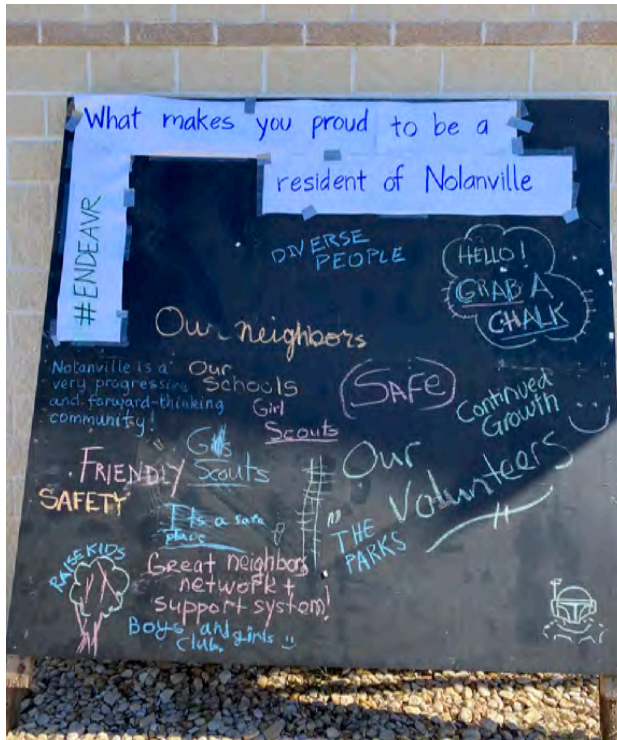 What makes you proud to be a
resident of Nolanville
#ENDEAVR
DIVERSE
PEOPLE
HELLO!
GRAB A
CHALK
Our neighbors
Nolanville is a
very progressive
and forward-thinking
community!
Our
Schools
Girl
Scouts
SAFE
Continued
Growth
Scouts
FRIENDLY
SAFETY
Our
Volunteers
It's a safe
place
THE
PARKS
RAISE KIDS
Great neighbors
network +
support system!
Boys and girls
club.